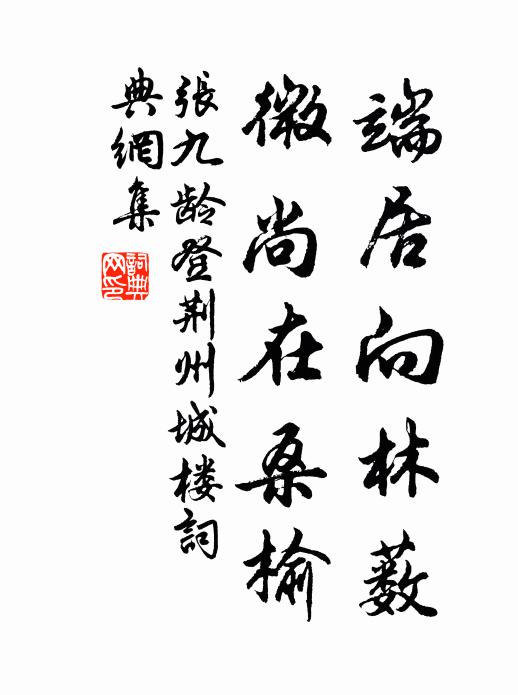 端居向林薮
微尚在桑榆
張九龄登荆州城楼詞
典網集
詞典网印